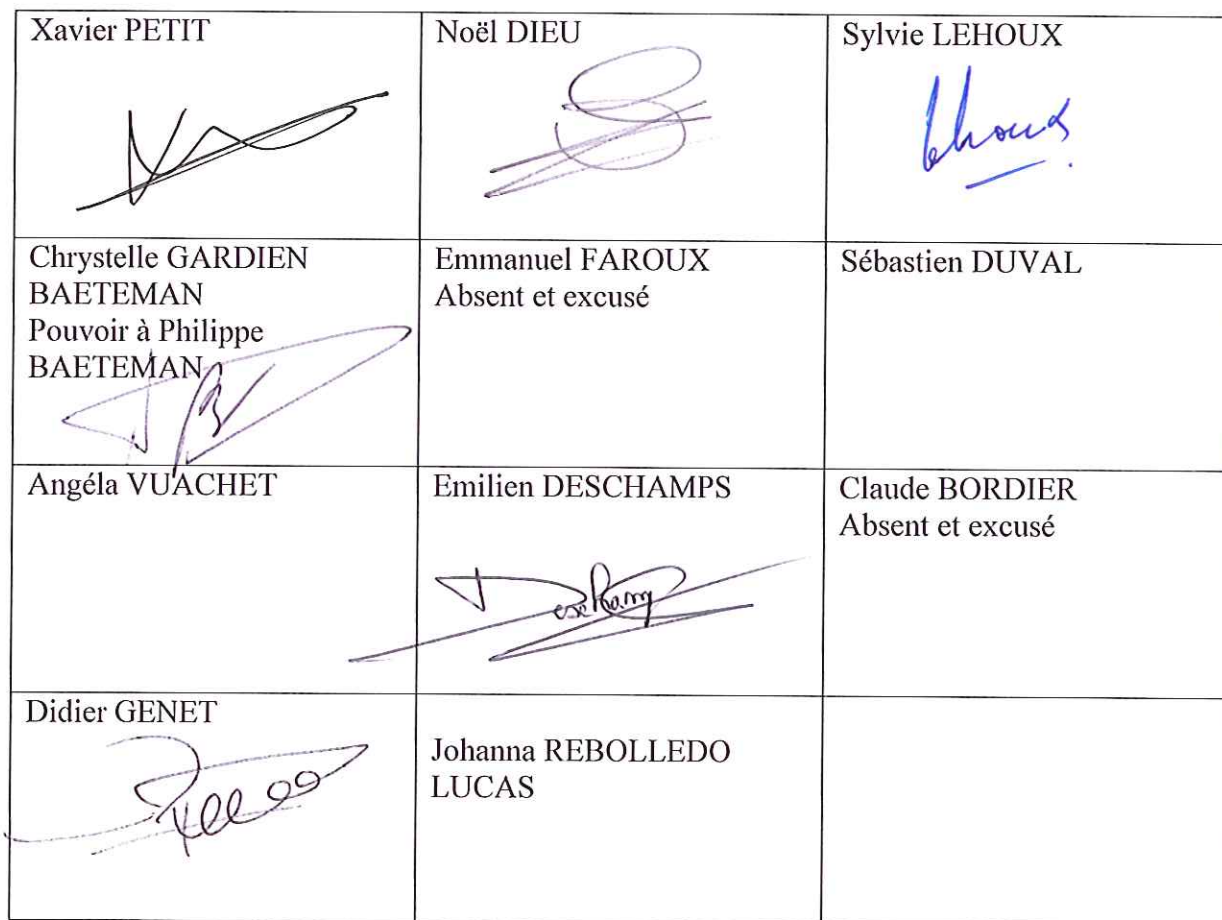 Xavier PETIT
Noël DIEU
Sylvie LEHOUX
lehoux
Chrystelle GARDIEN
BAETEMAN
Pouvoir à Philippe
BAETEMAN
Emmanuel FAROUX
Absent et excusé
Sébastien DUVAL
Angéla VUACHET
Emilien DESCHAMPS
Claude BORDIER
Absent et excusé
Didier GENET
Johanna REBOLLEDO
LUCAS